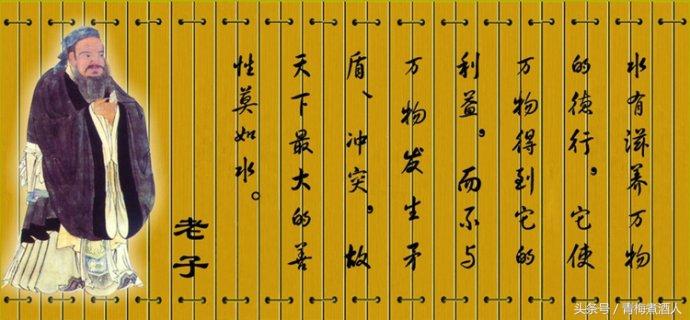 水有滋养万物
的德行，它使
万物得到它的
利益，而不与
万物发生矛
盾、冲突，故
天下最大的善
性莫如水。
老子
头条号 / 青梅煮酒人